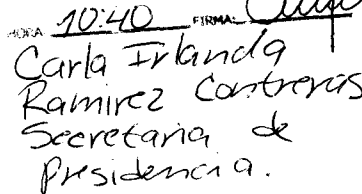 HORA: 10:40 FIRMA:
Carla Irlanda
Ramirez Contreras
Secretaria de
Presidencia.